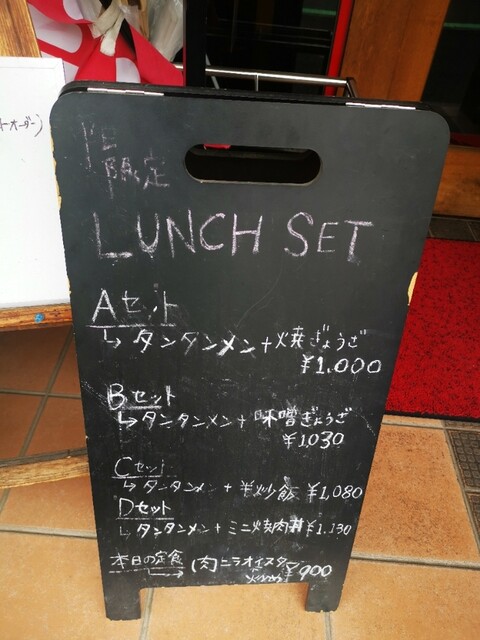 ーオーダー)
限定
LUNCH SET
Aセット
↳ タンタンメン + 焼ぎょうざ
¥1.000
Bセット
↳ タンタンメン + 味噌ぎょうざ
¥1.030
Cセット
↳ タンタンメン + 半炒飯 ¥1,080
Dセット
↳ タンタンメン + ミニ焼肉丼 ¥1.130
本日の定食 (肉)ニラオイスター
炒め ¥900